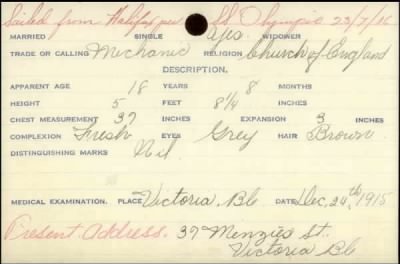 Sailed from Halifax per SS Olympic 23/7/16
MARRIED SINGLE Yes WIDOWER
TRADE OR CALLING Mechanic RELIGION Church of England
DESCRIPTION.
APPARENT AGE 18 YEARS 8 MONTHS
HEIGHT 5 FEET 8¼ INCHES
CHEST MEASUREMENT 37 INCHES EXPANSION 3 INCHES
COMPLEXION Fresh EYES Grey HAIR Brown
DISTINGUISHING MARKS Nil
MEDICAL EXAMINATION. PLACE Victoria BC DATE Dec, 24th, 1915
Present Address. 37 Menzies St.
Victoria BC